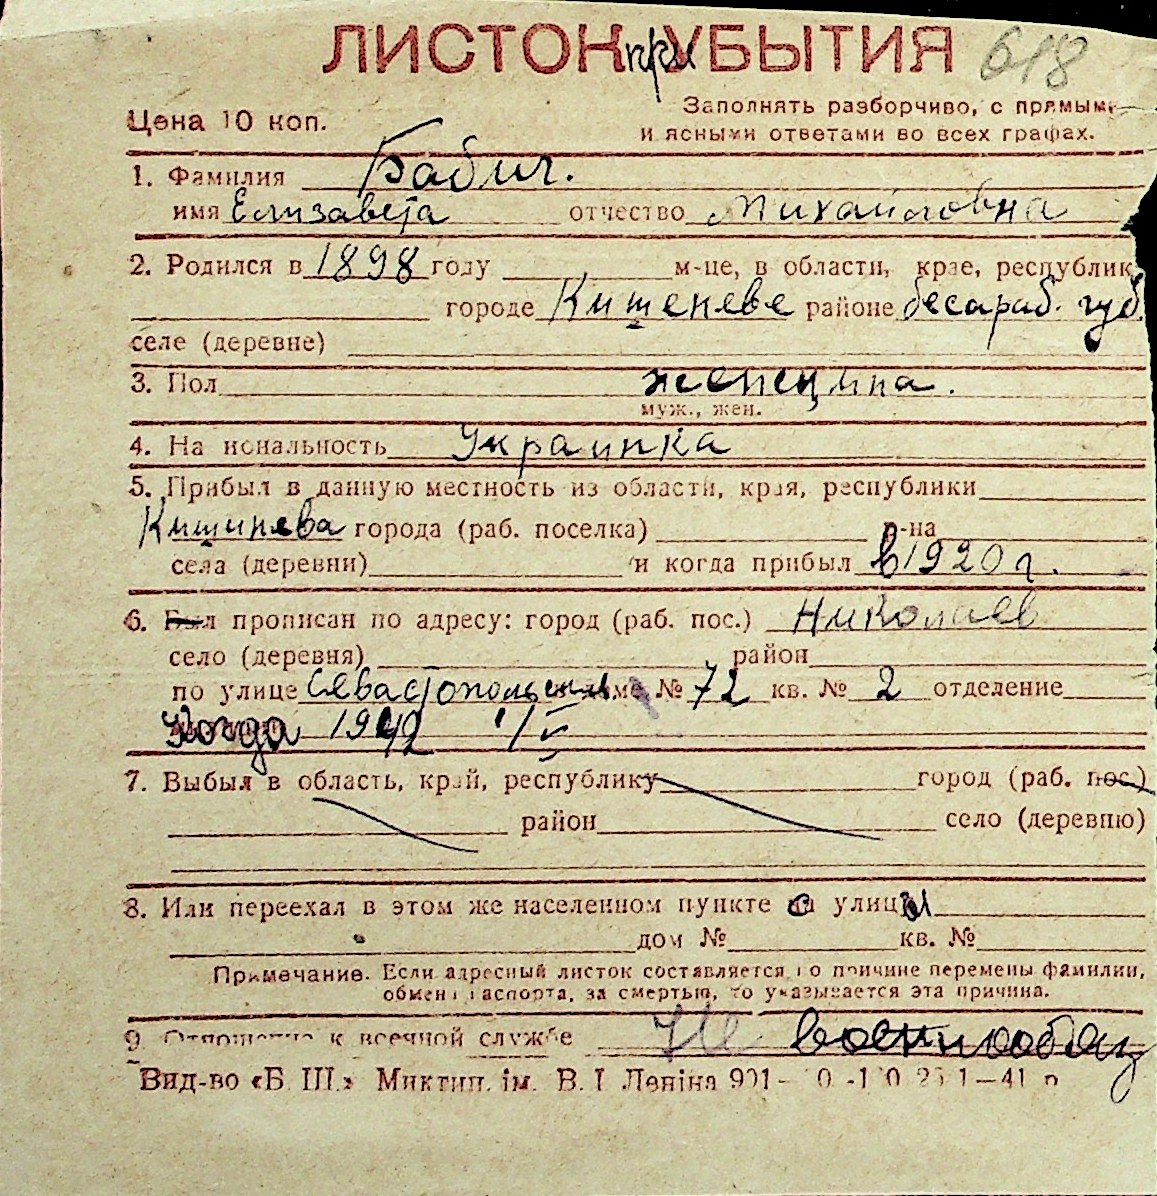 ЛИСТОК при УБЫТИЯ 618
Цена 10 коп.
Заполнять разборчиво, с прямыми
и ясными ответами во всех графах.
1. Фамилия Бабич.
имя Елизавета отчество Михайловна
2. Родился в 1898 году м-це, в области, крае, республик
городе Кишеневе районе бесараб. губ.
селе (деревне)
3. Пол женщина.
муж., жен.
4. Национальность Украинка
5. Прибыл в данную местность из области, края, республики
Кишинева города (раб. поселка) р-на
села (деревни) и когда прибыл в 1920 г.
6. Был прописан по адресу: город (раб. пос.) Николаев
село (деревня) район
по улице Севастопольская доме № 72 кв. № 2 отделение
Когда 1942 1/V
7. Выбыл в область, край, республику город (раб. пос.)
район село (деревню)
8. Или переехал в этом же населенном пункте с улицы
дом № кв. №
Примечание. Если адресный листок составляется по причине перемены фамилии,
обмена паспорта, за смертью, то указывается эта причина.
9. Отношение к военной службе Не военнообяз
Вид-во «Б. Ш.» Миктип. ім. В. І Леніна